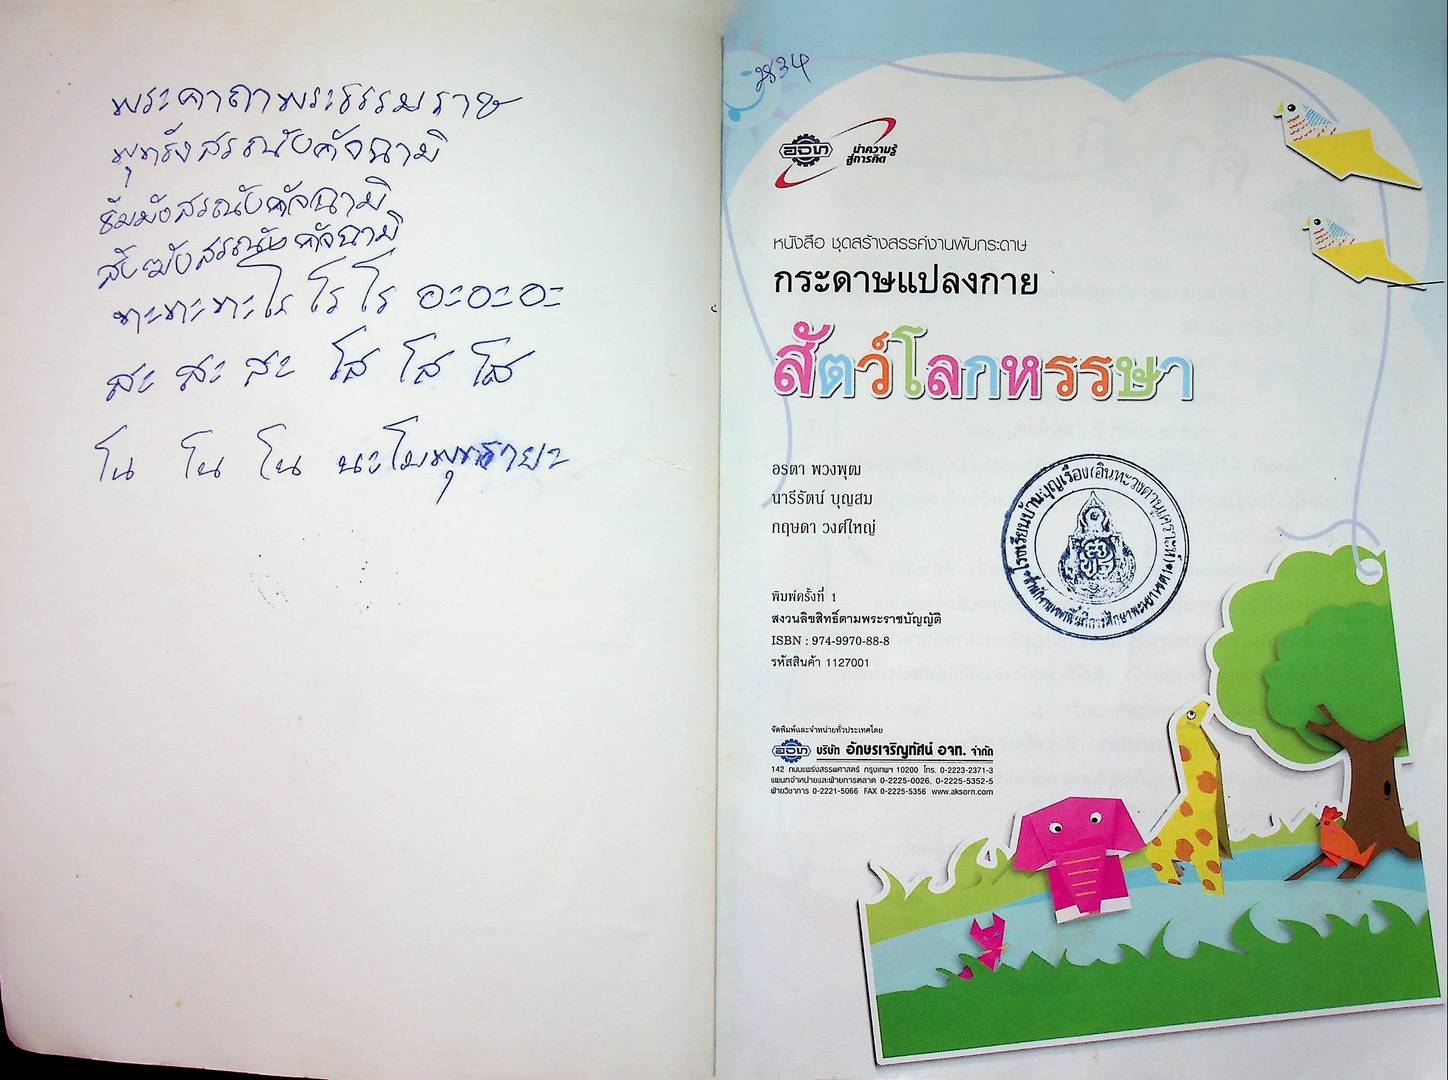 พระคาถาพระธรรมราช
พุทธังสรณังคัจฉามิ
ธัมมังสรณังคัจฉามิ
สังฆังสรณังคัจฉามิ
ทะทะทะ โร โร โร อะอะอะ
สะ สะ สะ โส โส โส
โน โน โน นะโมพุทธายะ
อจท
นำความรู้
สู่การคิด
หนังสือ ชุดสร้างสรรค์งานพับกระดาษ
กระดาษแปลงกาย
สัตว์โลกหรรษา
อรดา พวงพุฒ
นารีรัตน์ บุญสม
กฤษดา วงศ์ใหญ่
โรงเรียนบ้านบุญเรือง(อินทะวงศานุเคราะห์)
สำนักงานเขตพื้นที่การศึกษาพะเยาเขต1
พิมพ์ครั้งที่ 1
สงวนลิขสิทธิ์ตามพระราชบัญญัติ
ISBN : 974-9970-88-8
รหัสสินค้า 1127001
จัดพิมพ์และจำหน่ายทั่วประเทศโดย
อจท บริษัท อักษรเจริญทัศน์ อจท. จำกัด
142 ถนนแพร่งสรรพศาสตร์ กรุงเทพฯ 10200 โทร. 0-2223-2371-3
แผนกจำหน่ายและฝ่ายการตลาด 0-2225-0026, 0-2225-5352-5
ฝ่ายวิชาการ 0-2221-5066 FAX 0-2225-5356 www.aksorn.com